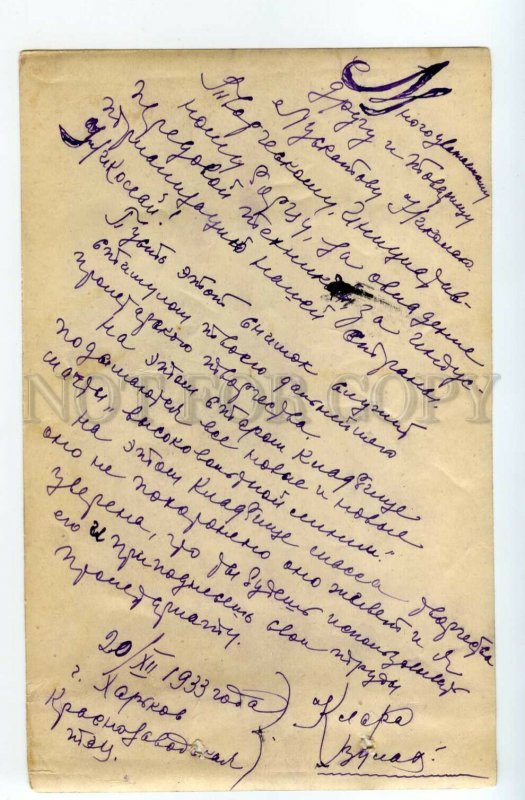 Многоуважаемому
другу и товарищу
Мускатову Николаю
Творческому, инициатив-
ному борцу, за овладение
передовой техникой за индус-
триализацию нашей страны
Пусть этот снимок служит
стимулом твоего дальнейшего
пролетарского творчества.
На этом старом кладбище
подымаются все новые и новые
мачты высоковольтной линии.
на этом кладбище масса творчества
оно не похоронено оно живет и я
уверена, что ты будешь использовать
его и приподнесешь свои труды
пролетариату.
20/XII 1933 года
г. Харьков
Краснозаводская
Клара
NOT FOR COPY